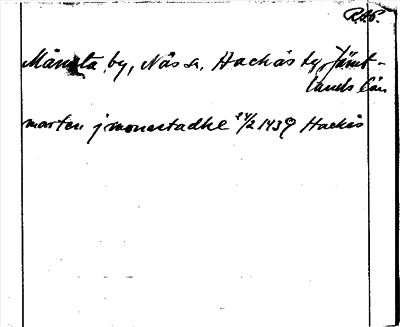 RAp.
Månsta by, Näs sn, Hackås tg, Jämt-
lands län
marten j monestadhe 24/2 1439 Hackås